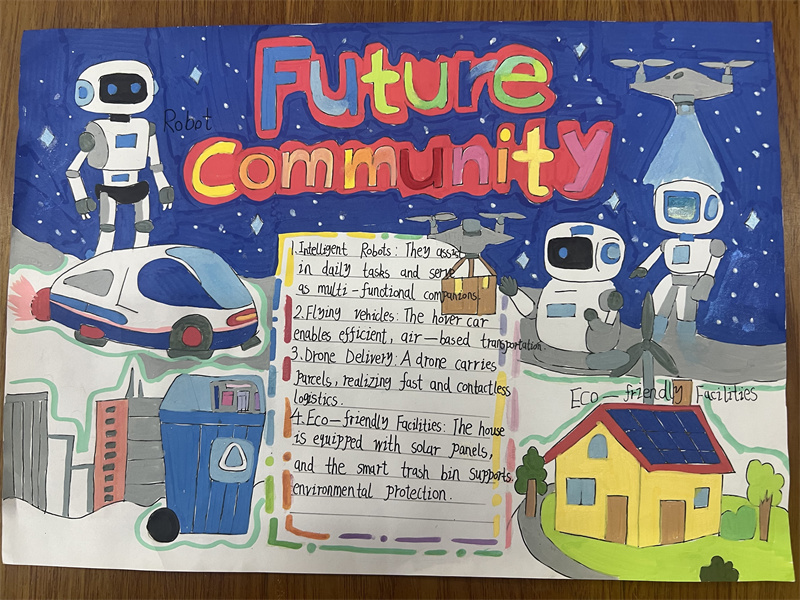 Future
Community
Robot
1. Intelligent Robots: They assist
in daily tasks and serve
as multi-functional companions.
2. Flying vehicles: The hover car
enables efficient, air-based transportation.
3. Drone Delivery: A drone carries
parcels, realizing fast and contactless
logistics.
4. Eco-friendly Facilities: The house
is equipped with solar panels,
and the smart trash bin supports
environmental protection.
Eco-friendly Facilities